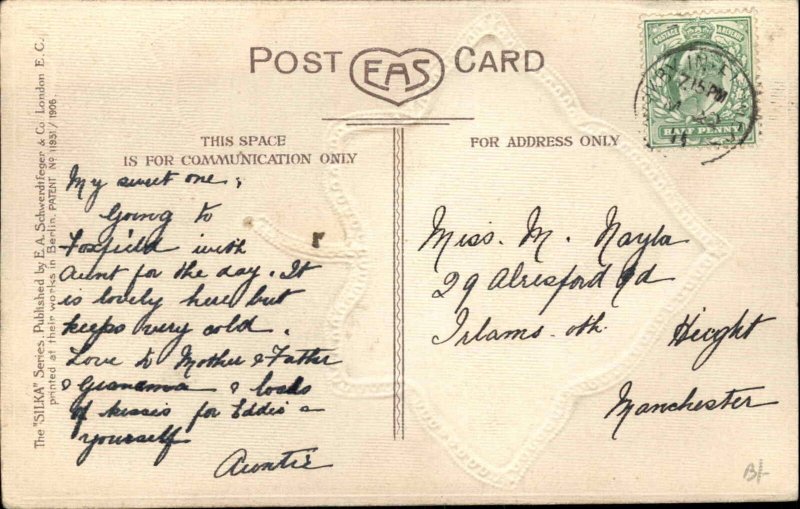 POST EAS CARD
POSTAGE & REVENUE
HALF PENNY
7.15 PM
THIS SPACE
IS FOR COMMUNICATION ONLY
FOR ADDRESS ONLY
The "SILKA" Series. Published by E. A. Schwerdtfeger & Co. London E. C.
printed at their works in Berlin. PATENT No 11951/1906.
My sweet one,
Going to
Foxfield with
Aunt for the day. It
is lovely here but
keeps very cold.
Love to Mother & Father
& Grandma & loads
of kisses for Eddie &
yourself
Auntie
Miss. M. Nayla
29 Alresford Rd
Irlams. oth. Height
Manchester